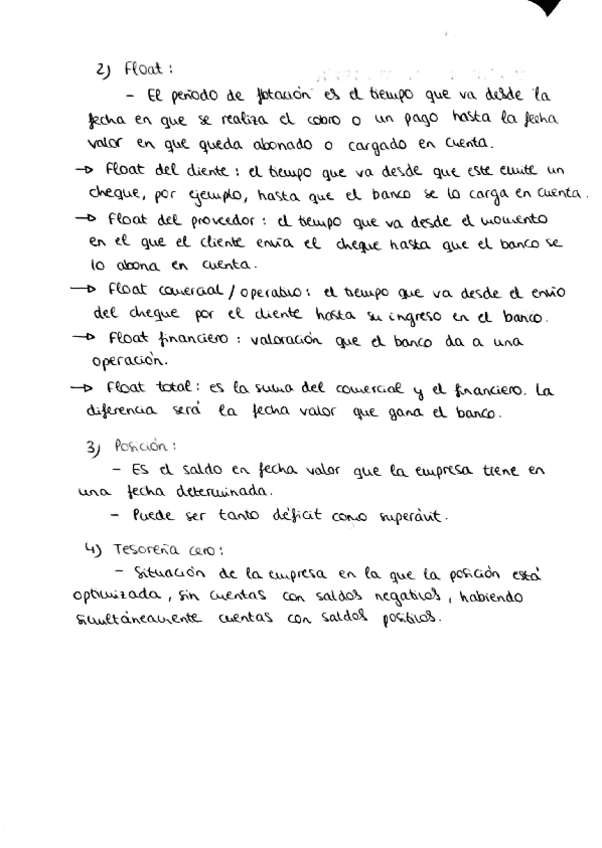 2) Float :
- El periodo de flotación es el tiempo que va desde la
fecha en que se realiza el cobro o un pago hasta la fecha
valor en que queda abonado o cargado en cuenta.
→ Float del cliente : el tiempo que va desde que este emite un
cheque, por ejemplo, hasta que el banco se lo carga en cuenta.
→ Float del proveedor : el tiempo que va desde el momento
en el que el cliente envía el cheque hasta que el banco se
lo abona en cuenta.
→ Float comercial / operativo : el tiempo que va desde el envío
del cheque por el cliente hasta su ingreso en el banco.
→ Float financiero : valoración que el banco da a una
operación.
→ Float total : es la suma del comercial y el financiero. La
diferencia será la fecha valor que gana el banco.
3) Posición :
- Es el saldo en fecha valor que la empresa tiene en
una fecha determinada.
- Puede ser tanto déficit como superávit.
4) Tesorería cero :
- Situación de la empresa en la que la posición está
optimizada, sin cuentas con saldos negativos, habiendo
simultáneamente cuentas con saldos positivos.